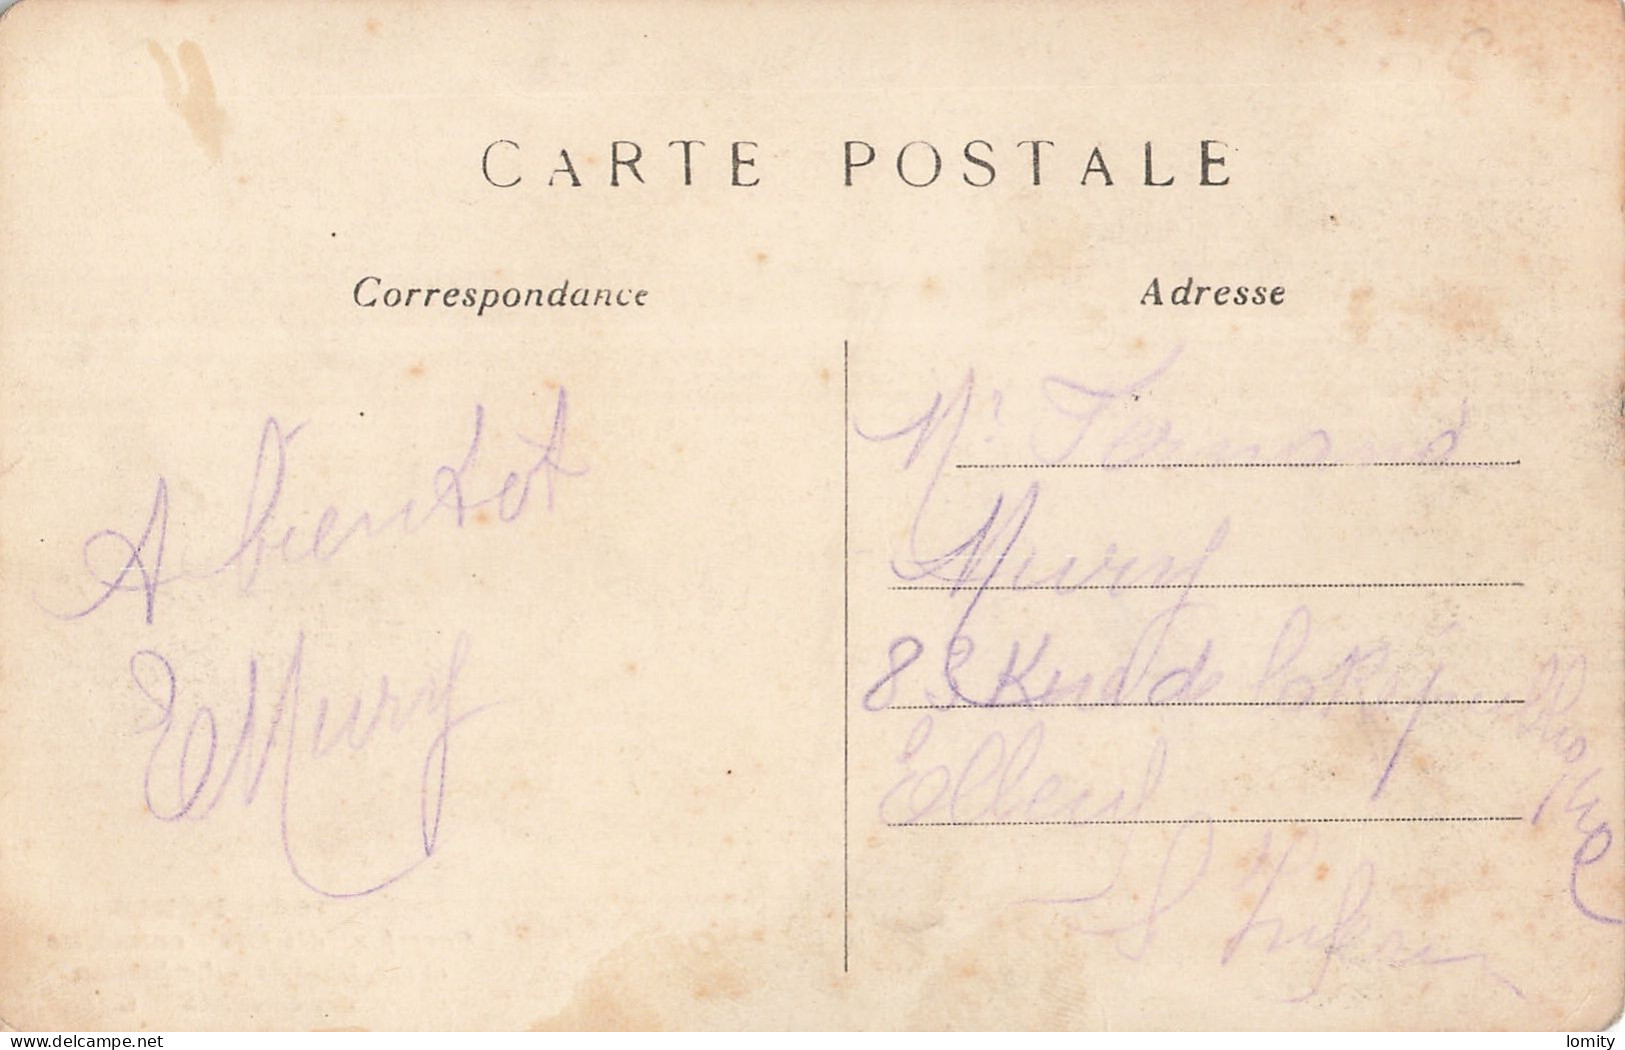 CARTE POSTALE
Correspondance
Adresse
A bientot
E Mury
Mr Fernand
Mury
83 Rue de la République
Elbeuf
S Infer
delcampe.net
lomity